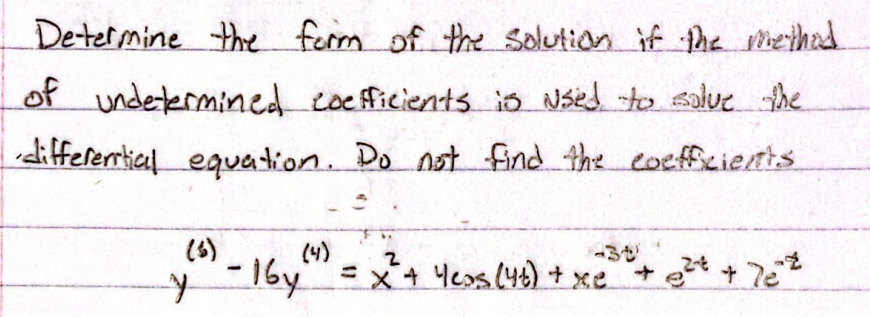 Determine the form of the solution if the method
of undetermined coefficients is used to solve the
differential equation. Do not find the coefficients
y^(8) - 16y^(4) = x^2 + 4cos(4t) + xe^-3t + e^2t + 7e^-t